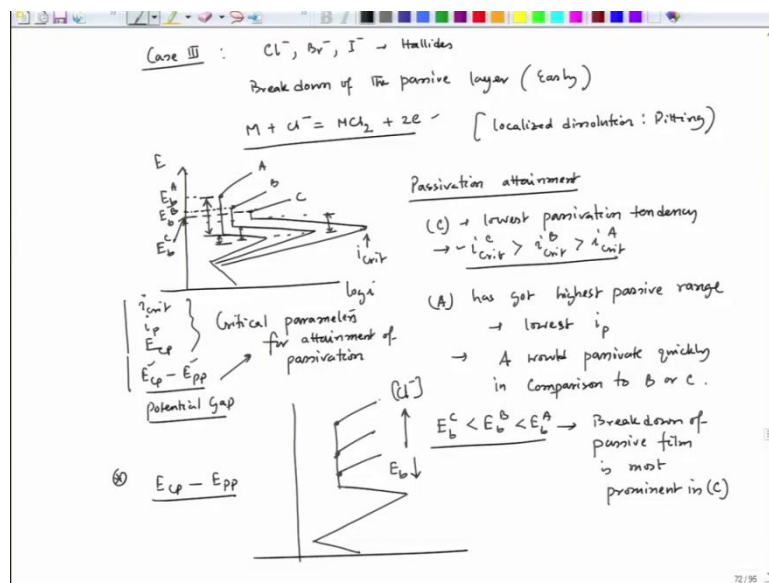 Case III : Cl⁻, Br⁻, I⁻ → Hallides
Breakdown of the passive layer (Easily)
M + Cl⁻ = MCl₂ + 2e⁻ [localized dissolution : Pitting)
E
A
B
C
E_b^A
E_b^B
E_b^C
i_crit
log i
Passivation attainment
(C) → lowest passivation tendency
→ i_crit^C > i_crit^B > i_crit^A
(A) has got highest passive range
→ lowest i_p
→ A would passivate quickly
in comparison to B or C.
i_crit
i_p
E_cp
E_cp - E_pp
Critical parameters
for attainment of
passivation
Potential Gap
E_cp - E_pp
[Cl⁻]
E_b ↓
E_b^C < E_b^B < E_b^A → Breakdown of
passive film
is most
prominent in (C)
72/95